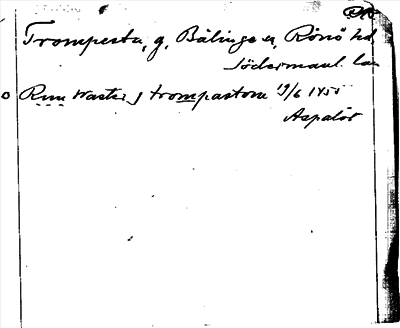 Trompesta, g. Bälinge sn, Rönö hd
Södermanl. län
Run Waster j trompastom 19/6 1455
Aspalös